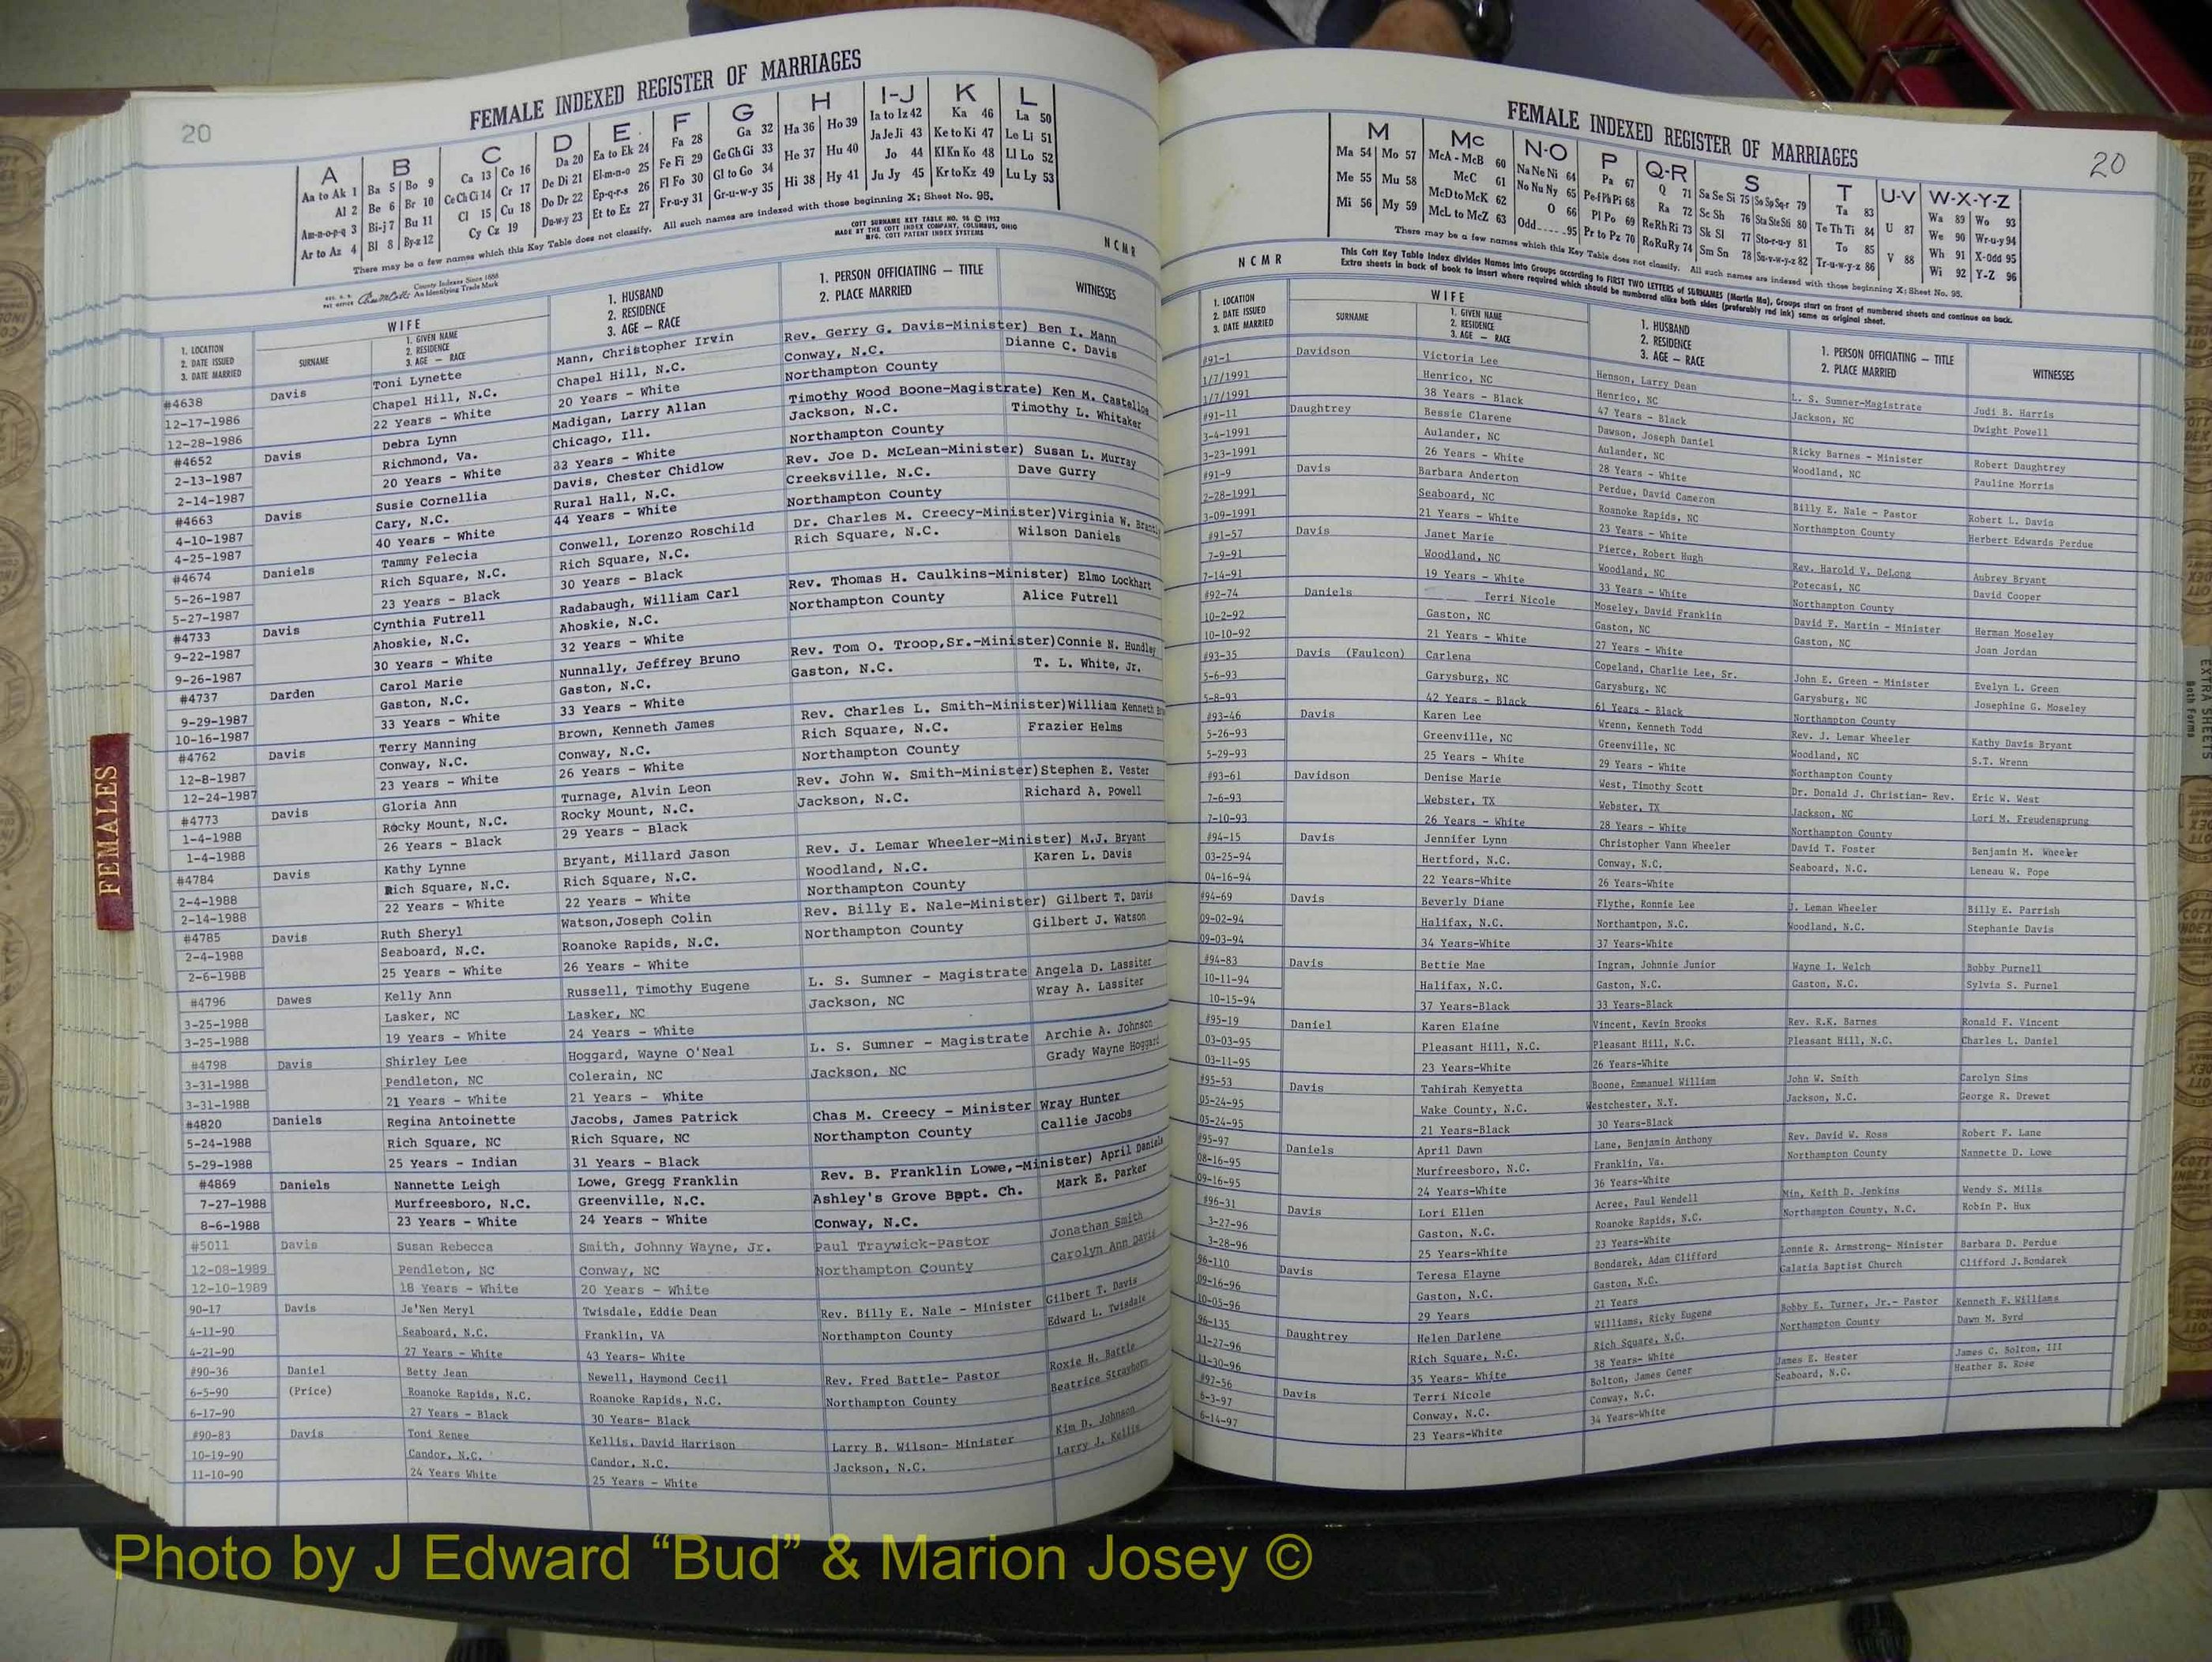 20
FEMALE INDEXED REGISTER OF MARRIAGES
A B C D E F G H I-J K L
Aa to Ak 1 Ba 5 Bo 9 Ca 13 Co 16 Da 20 Ea to Ek 24 Fa 28 Ga 32 Ha 36 Ho 39 Ia to Iz 42 Ka 46 La 50
Al 2 Be 6 Br 10 Ce Ch Ci 14 Cr 17 De Di 21 El-m-n-o 25 Fe Fi 29 Ge Gh Gi 33 He 37 Hu 40 Ja Je Ji 43 Ke to Ki 47 Le Li 51
Am-n-o-p-q 3 Bi-j 7 Bu 11 Cl 15 Cu 18 Do Dr 22 Ep-q-r-s 26 Fl Fo 30 Gl to Go 34 Hi 38 Hy 41 Jo 44 Kl Kn Ko 48 Ll Lo 52
Ar to Az 4 Bl 8 By-z 12 Cy Cz 19 Du-w-y 23 Et to Ez 27 Fr-u-y 31 Gr-u-w-y 35 Ju Jy 45 Kr to Kz 49 Lu Ly 53
There may be a few names which this Key Table does not classify. All such names are indexed with those beginning X; Sheet No. 95.
COTT SURNAME KEY TABLE NO. 96 © 1952
MADE BY THE COTT INDEX COMPANY, COLUMBUS, OHIO
MFG. COTT PATENT INDEX SYSTEMS
County Indexes Since 1888
An Identifying Trade Mark
NCMR
1. LOCATION
2. DATE ISSUED
3. DATE MARRIED
WIFE
SURNAME
1. GIVEN NAME
2. RESIDENCE
3. AGE — RACE
1. HUSBAND
2. RESIDENCE
3. AGE — RACE
1. PERSON OFFICIATING — TITLE
2. PLACE MARRIED
WITNESSES
#4638 Davis Toni Lynette Mann, Christopher Irvin Rev. Gerry G. Davis-Minister) Ben I. Mann
12-17-1986 Chapel Hill, N.C. Chapel Hill, N.C. Conway, N.C. Dianne C. Davis
12-28-1986 22 Years - White 20 Years - White Northampton County
#4652 Davis Debra Lynn Madigan, Larry Allan Timothy Wood Boone-Magistrate) Ken M. Castelloe
2-13-1987 Richmond, Va. Chicago, Ill. Jackson, N.C. Timothy L. Whitaker
2-14-1987 20 Years - White 33 Years - White Northampton County
#4663 Davis Susie Cornellia Davis, Chester Chidlow Rev. Joe D. McLean-Minister) Susan L. Murray
4-10-1987 Cary, N.C. Rural Hall, N.C. Creeksville, N.C. Dave Gurry
4-25-1987 40 Years - White 44 Years - White Northampton County
#4674 Daniels Tammy Felecia Conwell, Lorenzo Roschild Dr. Charles M. Creecy-Minister)Virginia W.
5-26-1987 Rich Square, N.C. Rich Square, N.C. Rich Square, N.C. Wilson Daniels
5-27-1987 23 Years - Black 30 Years - Black
#4733 Davis Cynthia Futrell Radabaugh, William Carl Rev. Thomas H. Caulkins-Minister) Elmo Lockhart
9-22-1987 Ahoskie, N.C. Ahoskie, N.C. Northampton County Alice Futrell
9-26-1987 30 Years - White 32 Years - White
#4737 Darden Carol Marie Nunnally, Jeffrey Bruno Rev. Tom O. Troop,Sr.-Minister)Connie N. Hundley
9-29-1987 Gaston, N.C. Gaston, N.C. Gaston, N.C. T. L. White, Jr.
10-16-1987 33 Years - White 33 Years - White
#4762 Davis Terry Manning Brown, Kenneth James Rev. Charles L. Smith-Minister)William Kenneth
12-8-1987 Conway, N.C. Conway, N.C. Rich Square, N.C. Frazier Helms
12-24-1987 23 Years - White 26 Years - White Northampton County
#4773 Davis Gloria Ann Turnage, Alvin Leon Rev. John W. Smith-Minister)Stephen E. Vester
1-4-1988 Rocky Mount, N.C. Rocky Mount, N.C. Jackson, N.C. Richard A. Powell
1-4-1988 26 Years - Black 29 Years - Black
#4784 Davis Kathy Lynne Bryant, Millard Jason Rev. J. Lemar Wheeler-Minister) M.J. Bryant
2-4-1988 Rich Square, N.C. Rich Square, N.C. Woodland, N.C. Karen L. Davis
2-14-1988 22 Years - White 22 Years - White Northampton County
#4785 Davis Ruth Sheryl Watson,Joseph Colin Rev. Billy E. Nale-Minister) Gilbert T. Davis
2-4-1988 Seaboard, N.C. Roanoke Rapids, N.C. Northampton County Gilbert J. Watson
2-6-1988 25 Years - White 26 Years - White
#4796 Dawes Kelly Ann Russell, Timothy Eugene L. S. Sumner - Magistrate Angela D. Lassiter
3-25-1988 Lasker, NC Lasker, NC Jackson, NC Wray A. Lassiter
3-25-1988 19 Years - White 24 Years - White
#4798 Davis Shirley Lee Hoggard, Wayne O'Neal L. S. Sumner - Magistrate Archie A. Johnson
3-31-1988 Pendleton, NC Colerain, NC Jackson, NC Grady Wayne Hoggard
3-31-1988 21 Years - White 21 Years - White
#4820 Daniels Regina Antoinette Jacobs, James Patrick Chas M. Creecy - Minister Wray Hunter
5-24-1988 Rich Square, NC Rich Square, NC Northampton County Callie Jacobs
5-29-1988 25 Years - Indian 31 Years - Black
#4869 Daniels Nannette Leigh Lowe, Gregg Franklin Rev. B. Franklin Lowe,-Minister) April Daniels
7-27-1988 Murfreesboro, N.C. Greenville, N.C. Ashley's Grove Bapt. Ch. Mark E. Parker
8-6-1988 23 Years - White 24 Years - White Conway, N.C.
#5011 Davis Susan Rebecca Smith, Johnny Wayne, Jr. Paul Traywick-Pastor Jonathan Smith
12-08-1989 Pendleton, NC Conway, NC Northampton County Carolyn Ann Davis
12-10-1989 18 Years - White 20 Years - White
90-17 Davis Je'Nen Meryl Twisdale, Eddie Dean Rev. Billy E. Nale - Minister Gilbert T. Davis
4-11-90 Seaboard, N.C. Franklin, VA Northampton County Edward L. Twisdale
4-21-90 27 Years - White 43 Years- White
#90-36 Daniel Betty Jean Newell, Haymond Cecil Rev. Fred Battle- Pastor Roxie H. Battle
6-5-90 (Price) Roanoke Rapids, N.C. Roanoke Rapids, N.C. Northampton County Beatrice Strayhorn
6-17-90 27 Years - Black 30 Years- Black
#90-83 Davis Toni Renee Kellis, David Harrison Larry B. Wilson- Minister Kim D. Johnson
10-19-90 Candor, N.C. Candor, N.C. Jackson, N.C. Larry J. Kellis
11-10-90 24 Years White 25 Years - White
FEMALES
FEMALE INDEXED REGISTER OF MARRIAGES
20
M Mc N-O P Q-R S T U-V W-X-Y-Z
Ma 54 Mo 57 McA - McB 60 Na Ne Ni 64 Pa 67 Q 71 Sa Se Si 75 So Sp Sq-r 79 Ta 83 U 87 Wa 89 Wo 93
Me 55 Mu 58 McC 61 No Nu Ny 65 Pe-f Ph Pi 68 Ra 72 Sc Sh 76 Sta Ste Sti 80 Te Th Ti 84 V 88 We 90 Wr-u-y 94
Mi 56 My 59 McD to McK 62 O 66 Pl Po 69 Re Rh Ri 73 Sk Sl 77 Sto-r-u-y 81 To 85 Wh 91 X-Odd 95
McL to McZ 63 Odd 95 Pr to Pz 70 Ro Ru Ry 74 Sm Sn 78 Su-v-w-y-z 82 Tr-u-w-y-z 86 Wi 92 Y-Z 96
There may be a few names which this Key Table does not classify. All such names are indexed with those beginning X; Sheet No. 95.
This Cott Key Table Index divides Names into Groups according to FIRST TWO LETTERS of SURNAMES (Martin Ma), Groups start on front of numbered sheets and continue on back.
Extra sheets in back of book to insert where required which should be numbered alike both sides (preferably red ink) same as original sheet.
NCMR
1. LOCATION
2. DATE ISSUED
3. DATE MARRIED
WIFE
SURNAME
1. GIVEN NAME
2. RESIDENCE
3. AGE — RACE
1. HUSBAND
2. RESIDENCE
3. AGE — RACE
1. PERSON OFFICIATING — TITLE
2. PLACE MARRIED
WITNESSES
#91-1 Davidson Victoria Lee Henson, Larry Dean L. S. Sumner-Magistrate Judi B. Harris
1/7/1991 Henrico, NC Henrico, NC Jackson, NC Dwight Powell
1/7/1991 38 Years - Black 47 Years - Black
#91-11 Daughtrey Bessie Clarene Dawson, Joseph Daniel Ricky Barnes - Minister Robert Daughtrey
3-4-1991 Aulander, NC Aulander, NC Woodland, NC Pauline Morris
3-23-1991 26 Years - White 28 Years - White
#91-9 Davis Barbara Anderton Perdue, David Cameron Billy E. Nale - Pastor Robert L. Davis
2-28-1991 Seaboard, NC Roanoke Rapids, NC Northampton County Herbert Edwards Perdue
3-09-1991 21 Years - White 23 Years - White
#91-57 Davis Janet Marie Pierce, Robert Hugh Rev. Harold V. DeLong Aubrey Bryant
7-9-91 Woodland, NC Woodland, NC Potecasi, NC David Cooper
7-14-91 19 Years - White 33 Years - White Northampton County
#92-74 Daniels Terri Nicole Moseley, David Franklin David F. Martin - Minister Herman Moseley
10-2-92 Gaston, NC Gaston, NC Gaston, NC Joan Jordan
10-10-92 21 Years - White 27 Years - White
#93-35 Davis (Faulcon) Carlena Copeland, Charlie Lee, Sr. John E. Green - Minister Evelyn L. Green
5-6-93 Garysburg, NC Garysburg, NC Garysburg, NC Josephine G. Moseley
5-8-93 42 Years - Black 61 Years - Black Northampton County
#93-46 Davis Karen Lee Wrenn, Kenneth Todd Rev. J. Lemar Wheeler Kathy Davis Bryant
5-26-93 Greenville, NC Greenville, NC Woodland, NC S.T. Wrenn
5-29-93 25 Years - White 29 Years - White Northampton County
#93-61 Davidson Denise Marie West, Timothy Scott Dr. Donald J. Christian- Rev. Eric W. West
7-6-93 Webster, TX Webster, TX Jackson, NC Lori M. Freudensprung
7-10-93 26 Years - White 28 Years - White Northampton County
#94-15 Davis Jennifer Lynn Christopher Vann Wheeler David T. Foster Benjamin M. Wheeler
03-25-94 Hertford, N.C. Conway, N.C. Seaboard, N.C. Leneau W. Pope
04-16-94 22 Years-White 26 Years-White
#94-69 Davis Beverly Diane Flythe, Ronnie Lee J. Leman Wheeler Billy E. Parrish
09-02-94 Halifax, N.C. Northamtpon, N.C. Woodland, N.C. Stephanie Davis
09-03-94 34 Years-White 37 Years-White
#94-83 Davis Bettie Mae Ingram, Johnnie Junior Wayne I. Welch Bobby Purnell
10-11-94 Halifax, N.C. Gaston, N.C. Gaston, N.C. Sylvia S. Purnel
10-15-94 37 Years-Black 33 Years-Black
#95-19 Daniel Karen Elaine Vincent, Kevin Brooks Rev. R.K. Barnes Ronald F. Vincent
03-03-95 Pleasant Hill, N.C. Pleasant Hill, N.C. Pleasant Hill, N.C. Charles L. Daniel
03-11-95 23 Years-White 26 Years-White
#95-53 Davis Tahirah Kemyetta Boone, Emmanuel William John W. Smith Carolyn Sims
05-24-95 Wake County, N.C. Westchester, N.Y. Jackson, N.C. George R. Drewet
05-24-95 21 Years-Black 30 Years-Black
#95-97 Daniels April Dawn Lane, Benjamin Anthony Rev. David W. Ross Robert F. Lane
08-16-95 Murfreesboro, N.C. Franklin, Va. Northampton County Nannette D. Lowe
09-16-95 24 Years-White 36 Years-White
#96-31 Davis Lori Ellen Acree, Paul Wendell Min, Keith D. Jenkins Wendy S. Mills
3-27-96 Gaston, N.C. Roanoke Rapids, N.C. Northampton County, N.C. Robin P. Hux
3-28-96 25 Years-White 23 Years-White
96-110 Davis Teresa Elayne Bondarek, Adam Clifford Lonnie R. Armstrong- Minister Barbara D. Perdue
09-16-96 Gaston, N.C. Gaston, N.C. Galatia Baptist Church Clifford J.Bondarek
10-05-96 29 Years 21 Years
96-135 Daughtrey Helen Darlene Williams, Ricky Eugene Bobby E. Turner, Jr.- Pastor Kenneth F. Williams
11-27-96 Rich Square, N.C. Rich Square, N.C. Northampton County Dawn M. Byrd
11-30-96 35 Years- White 38 Years- White
#97-56 Davis Terri Nicole Bolton, James Cener James E. Hester James C. Bolton, III
6-3-97 Conway, N.C. Conway, N.C. Seaboard, N.C. Heather B. Rose
6-14-97 23 Years-White 34 Years-White
EXTRA SHEETS
Both Forms
Photo by J Edward “Bud” & Marion Josey ©